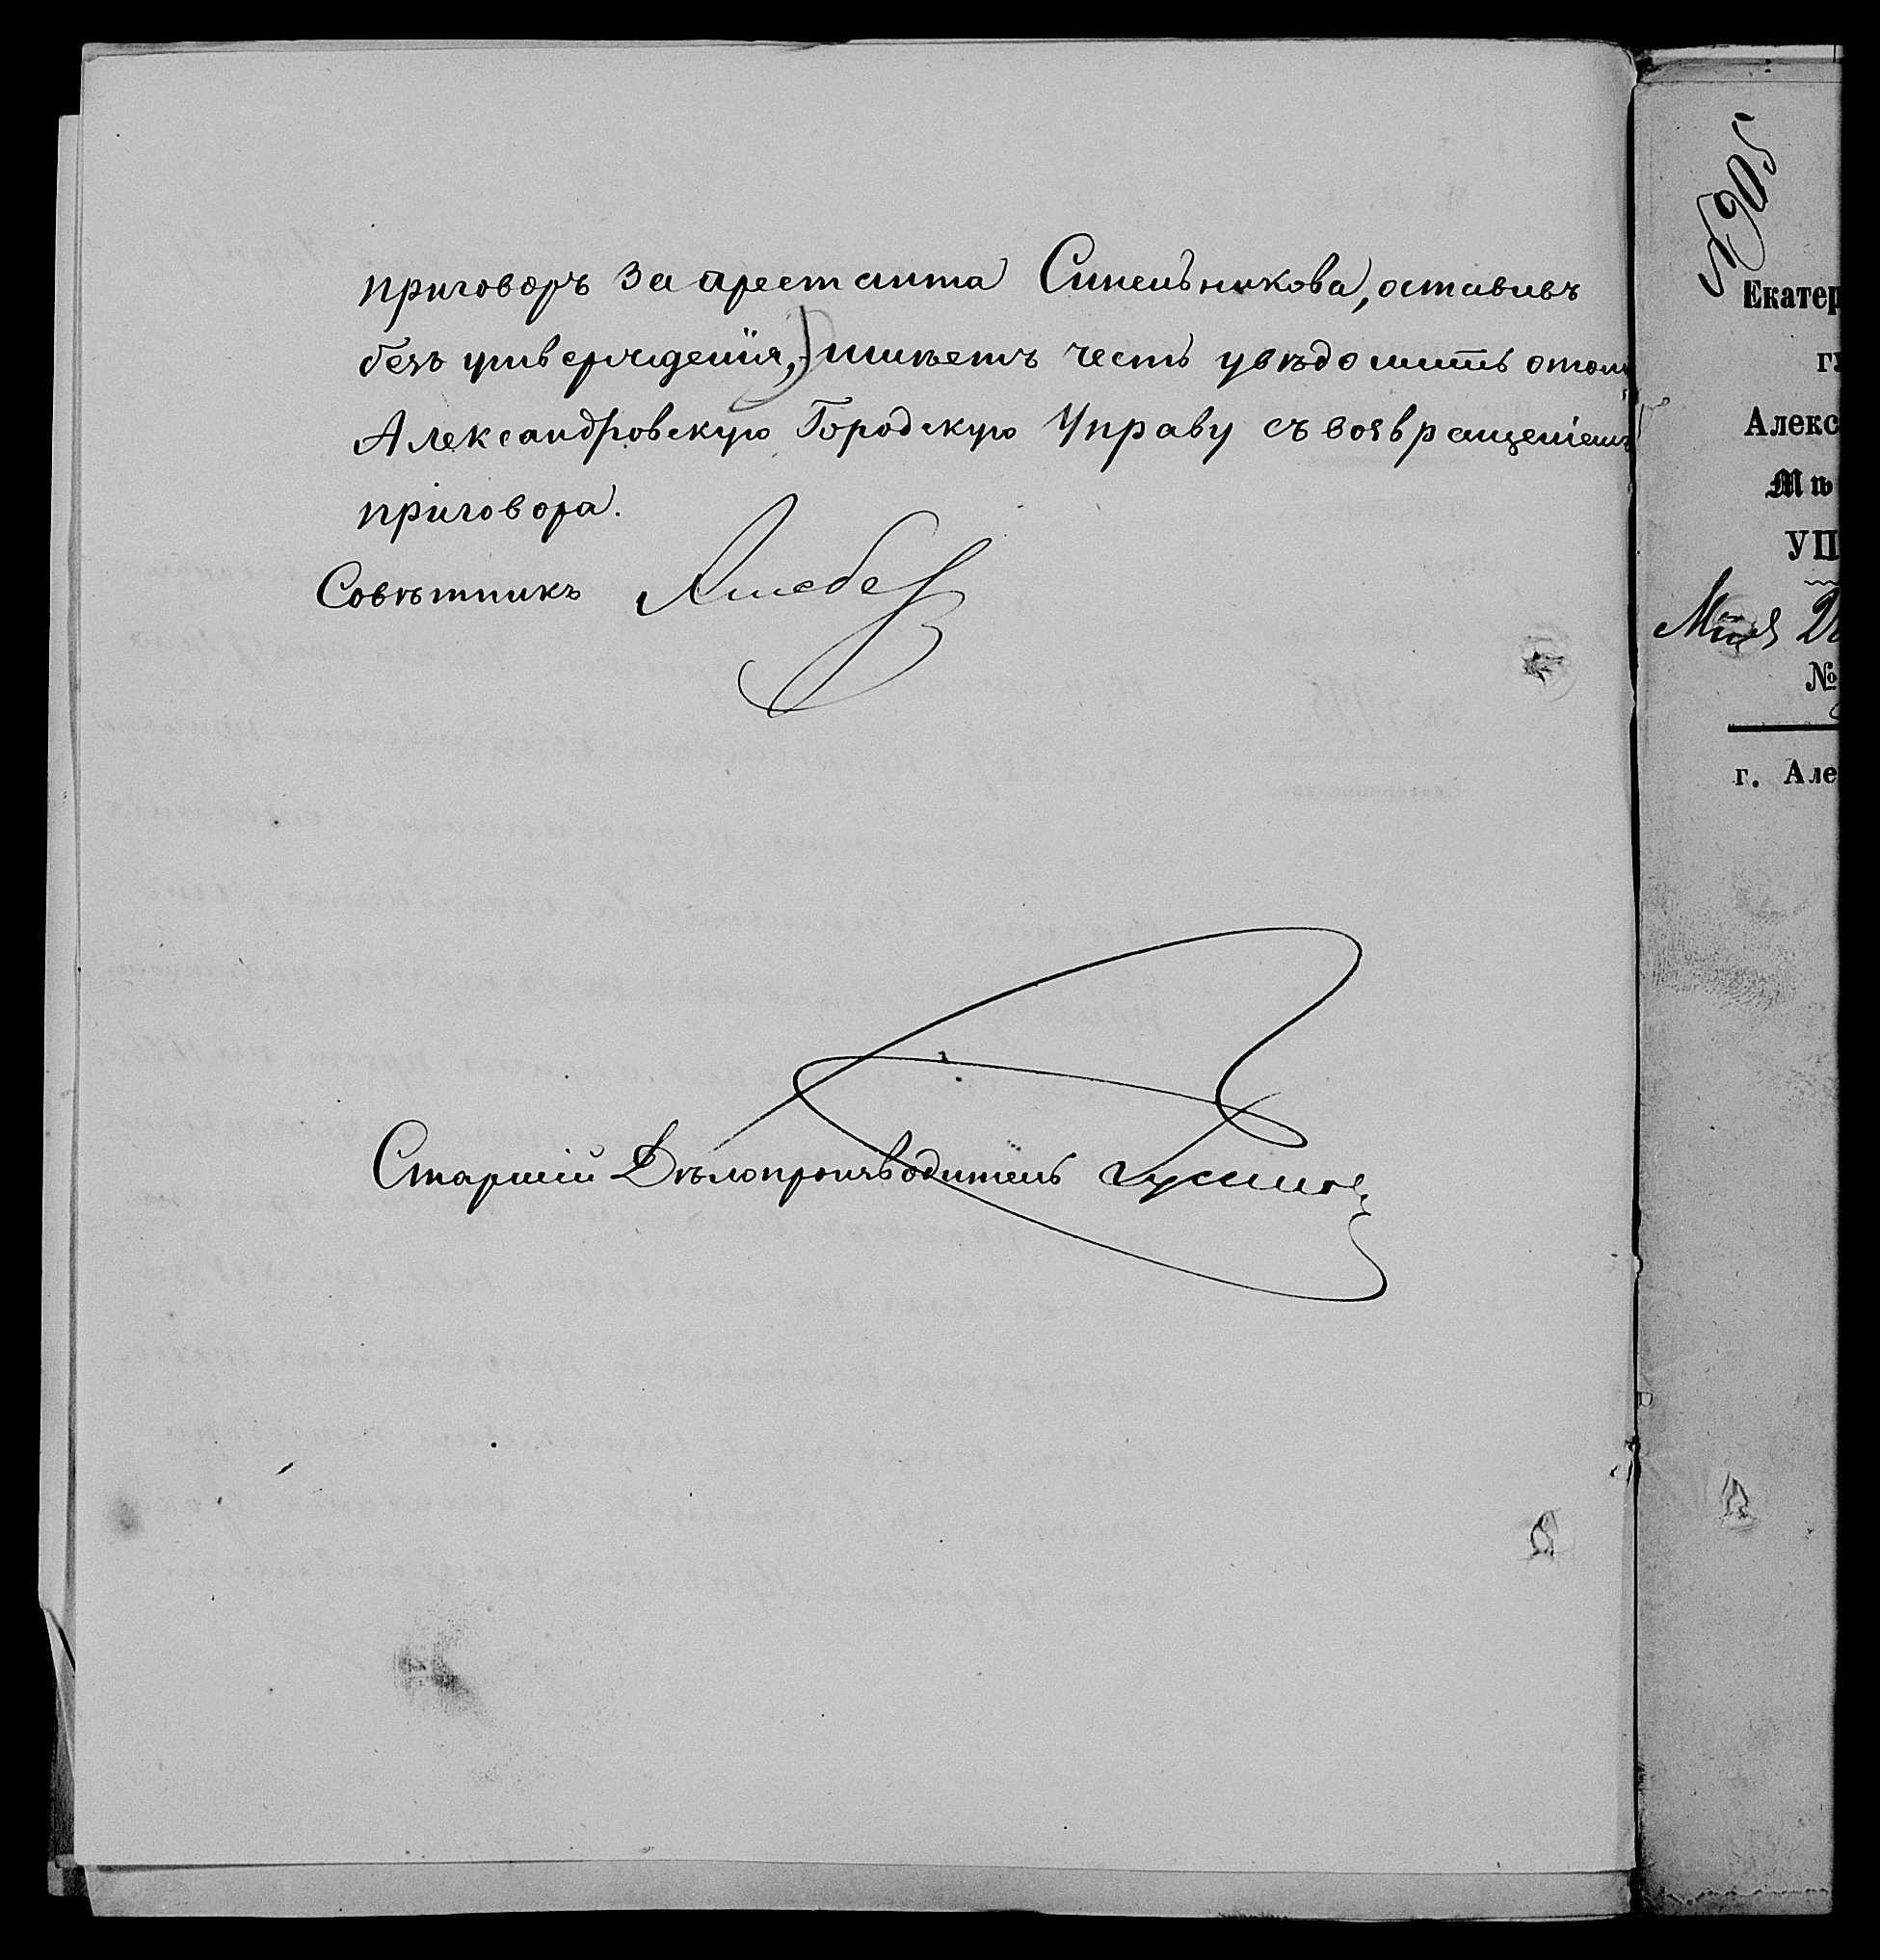 приговоръ за арестанта Синельникова, оставивъ
безъ утвержденія, имѣетъ честь увѣдомить о том
Александровскую Городскую Управу съ возвращеніемъ
приговора.
Совѣтникъ
Старшій Дѣлопроизводитель
№ 905
Екатер
ГУ
Алекс
Мѣ
УП
№
г. Але